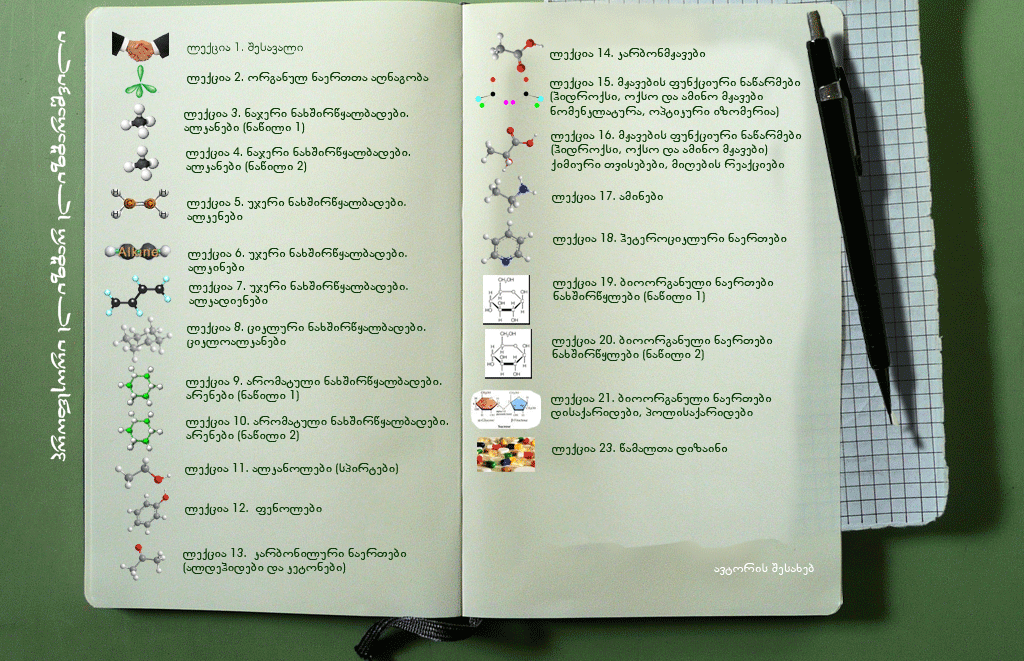 ლექცია 1. შესავალი
ლექცია 2. ორგანულ ნაერთთა აღნაგობა
ლექცია 3. ნაჯერი ნახშირწყალბადები.
ალკანები (ნაწილი 1)
ლექცია 4. ნაჯერი ნახშირწყალბადები.
ალკანები (ნაწილი 2)
ლექცია 5. უჯერი ნახშირწყალბადები.
ალკენები
Allene
ლექცია 6. უჯერი ნახშირწყალბადები.
ალკინები
ლექცია 7. უჯერი ნახშირწყალბადები.
ალკადიენები
ლექცია 8. ციკლური ნახშირწყალბადები.
ციკლოალკანები
ლექცია 9. არომატული ნახშირწყალბადები.
არენები (ნაწილი 1)
ლექცია 10. არომატული ნახშირწყალბადები.
არენები (ნაწილი 2)
ლექცია 11. ალკანოლები (სპირტები)
ლექცია 12. ფენოლები
ლექცია 13. კარბონილური ნაერთები
(ალდეჰიდები და კეტონები)
ლექცია 14. კარბონმჟავები
ლექცია 15. მჟავების ფუნქციური ნაწარმები
(ჰიდროქსი, ოქსო და ამინო მჟავები
ნომენკლატურა, ოპტიკური იზომერია)
ლექცია 16. მჟავების ფუნქციური ნაწარმები
(ჰიდროქსი, ოქსო და ამინო მჟავები)
ქიმიური თვისებები, მიღების რეაქციები
ლექცია 17. ამინები
ლექცია 18. ჰეტეროციკლური ნაერთები
ლექცია 19. ბიოორგანული ნაერთები
ნახშირწყლები (ნაწილი 1)
ლექცია 20. ბიოორგანული ნაერთები
ნახშირწყლები (ნაწილი 2)
ლექცია 21. ბიოორგანული ნაერთები
დისაქარიდები, პოლისაქარიდები
ლექცია 23. წამალთა დიზაინი
ავტორის შესახებ